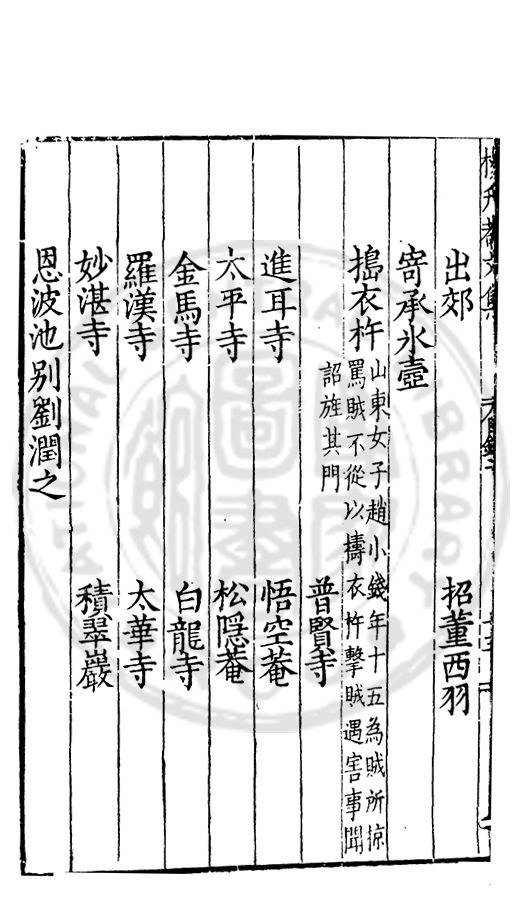 楊升菴文集
出郊 招董西羽
寄承氷壺
搗衣杵
山東女子趙小錢年十五為賊所掠
罵賊不從以擣衣杵擊賊遇害事聞
詔旌其門
普賢寺
進耳寺 悟空菴
太平寺 松隱菴
金馬寺 白龍寺
羅漢寺 太華寺
妙湛寺 積翠巖
恩波池別劉潤之